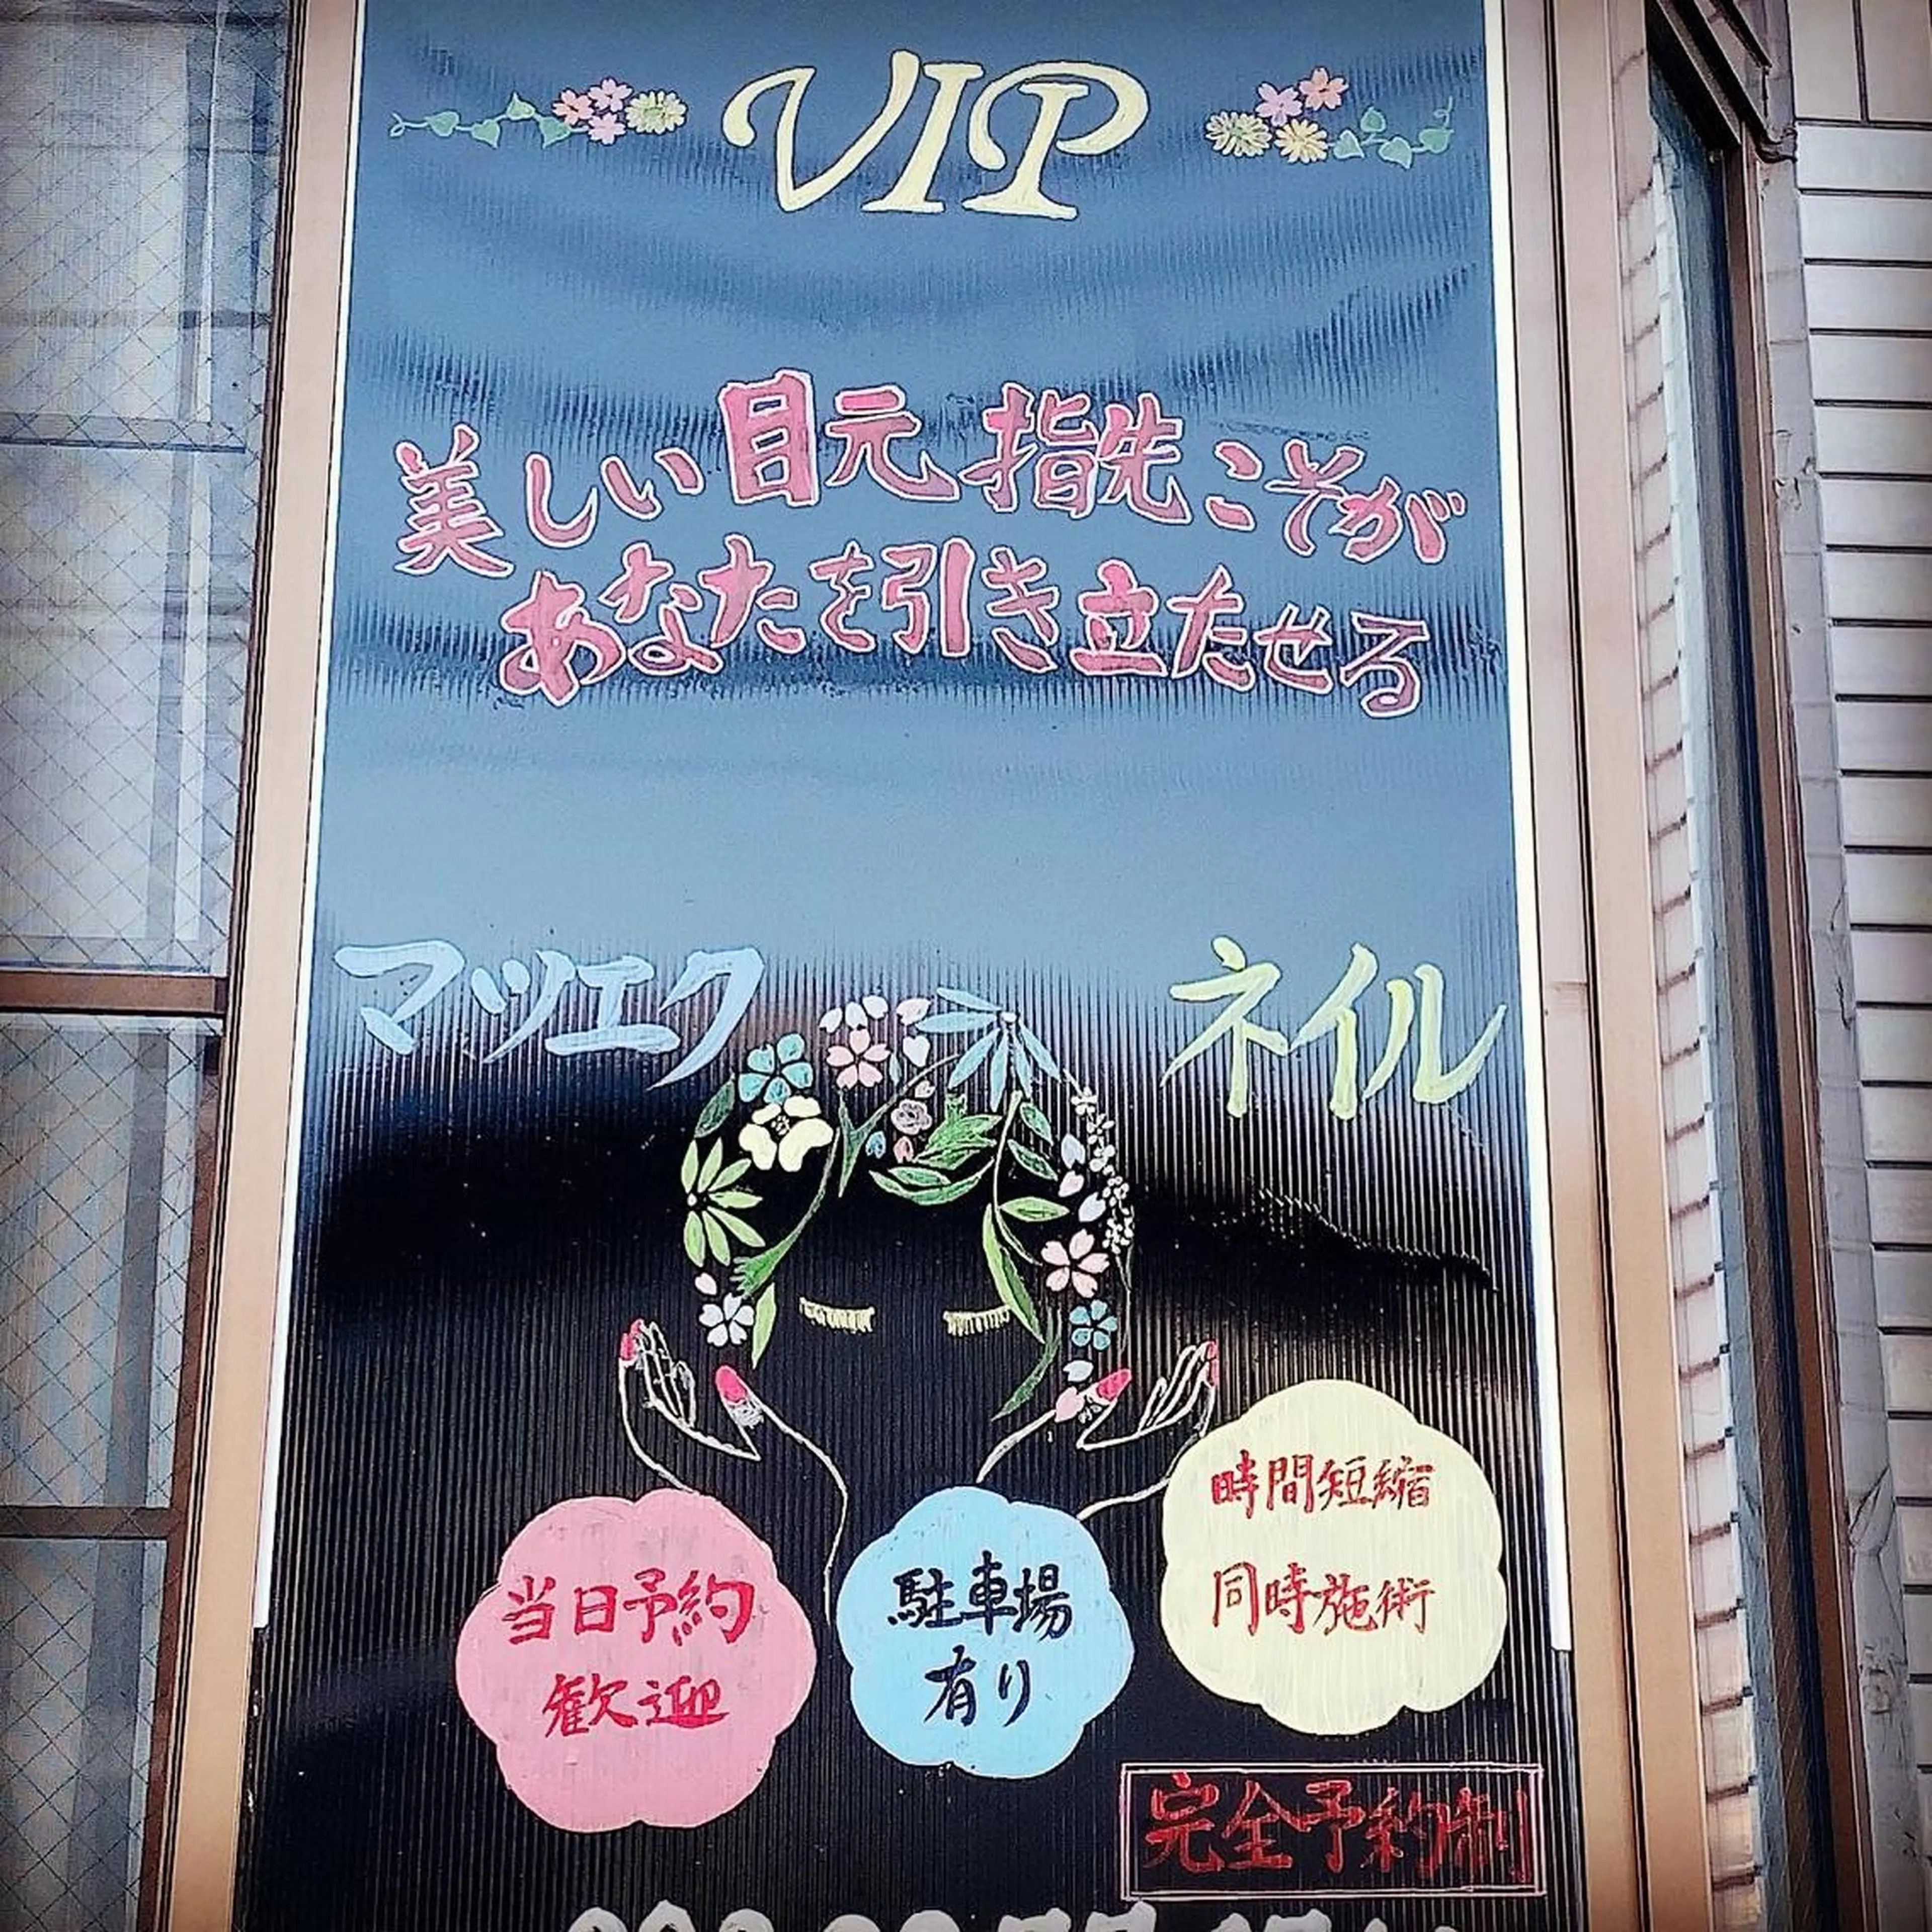 VIP
美しい目元 指先こそが
あなたを引き立たせる
マツエク
ネイル
時間短縮
同時施術
当日予約
歓迎
駐車場
有り
完全予約制